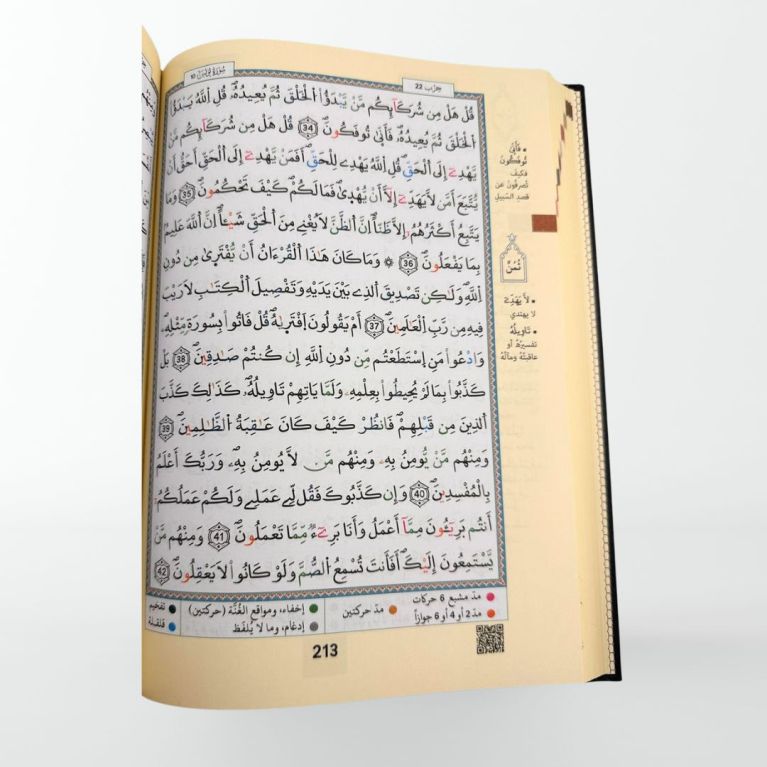 سُورَةُ يُونُسَ 10
حِزْب 22
قُلْ هَلْ مِن شُرَكَآئِكُم مَّنْ يَّبْدَؤُاْ اُ۬لْخَلْقَ ثُمَّ يُعِيدُهُۥۖ قُلِ اِ۬للَّهُ يَبْدَؤُاْ
اُ۬لْخَلْقَ ثُمَّ يُعِيدُهُۥۖ فَأَنّ۪ى تُوفَكُونَۖ 34 قُلْ هَلْ مِن شُرَكَآئِكُم مَّنْ
يَّهْدِےٓ إِلَى اَ۬لْحَقِّۖ قُلِ اِ۬للَّهُ يَهْدِے لِلْحَقِّۖ أَفَمَنْ يَّهْدِےٓ إِلَى اَ۬لْحَقِّ أَحَقُّ أَنْ
يُّتَّبَعَ أَمَّن لَّا يَهَدِّےٓ إِلَّآ أَنْ يُّهْد۪ىۖ فَمَا لَكُمْ كَيْفَ تَحْكُمُونَۖ 35 وَمَا
يَتَّبِعُ أَكْثَرُهُمُۥٓ إِلَّا ظَنّاًۖ اِنَّ اَ۬لظَّنَّ لَا يُغْنِے مِنَ اَ۬لْحَقِّ شَيْـٔاًۖ اِنَّ اَ۬للَّهَ عَلِيمُۢ
بِمَا يَفْعَلُونَۖ 36 ۞ وَمَا كَانَ هَٰذَا اَ۬لْقُرْءَانُ أَنْ يُّفْتَر۪ىٰ مِن دُونِ
اِ۬للَّهِۖ وَلَٰكِن تَصْدِيقَ اَ۬لذِے بَيْنَ يَدَيْهِ وَتَفْصِيلَ اَ۬لْكِتَٰبِ لَا رَيْبَ
فِيهِ مِن رَّبِّ اِ۬لْعَٰلَمِينَۖ 37 أَمْ يَقُولُونَ اَ۪فْتَر۪ىٰهُۖ قُلْ فَاتُواْ بِسُورَةٖ مِّثْلِهِۦ
وَادْعُواْ مَنِ اِ۪سْتَطَعْتُم مِّن دُونِ اِ۬للَّهِ إِن كُنتُمْ صَٰدِقِينَۖ 38 بَلْ
كَذَّبُواْ بِمَا لَمْ يُحِيطُواْ بِعِلْمِهِۦ وَلَمَّا يَاتِهِمْ تَاوِيلُهُۥۖ كَذَٰلِكَ كَذَّبَ
اَ۬لذِينَ مِن قَبْلِهِمْۖ فَانظُرْ كَيْفَ كَانَ عَٰقِبَةُ اُ۬لظَّٰلِمِينَۖ 39
وَمِنْهُم مَّنْ يُّومِنُ بِهِۦ وَمِنْهُم مَّن لَّا يُومِنُ بِهِۦۖ وَرَبُّكَ أَعْلَمُ
بِالْمُفْسِدِينَۖ 40 وَإِن كَذَّبُوكَ فَقُل لِّے عَمَلِے وَلَكُمْ عَمَلُكُمُۥٓ
أَنتُم بَرِيٓـُٔونَ مِمَّآ أَعْمَلُ وَأَنَا بَرِےٓءٞ مِّمَّا تَعْمَلُونَۖ 41 وَمِنْهُم مَّنْ
يَّسْتَمِعُونَ إِلَيْكَۖ أَفَأَنتَ تُسْمِعُ اُ۬لصُّمَّ وَلَوْ كَانُواْ لَا يَعْقِلُونَۖ 42
• فَأَنّ۪ى
تُوفَكُونَ
فكيف
تُصرَفُونَ عن
قصدِ السّبيلِ
ثُمُنٌ
• لَا يَهَدِّےٓ
لا يهتدي
• تَاوِيلُهُ
تفسيرُهُ أو
عاقبتُهُ ومآلُهُ
مدّ مشبع 6 حركات
مدّ 2 أو 4 أو 6 جوازاً
مدّ حركتين
إخفاء، ومواقع الغُنَّة (حركتين)
إدغام، وما لا يُلفَظ
تفخيم
قلقلة
213